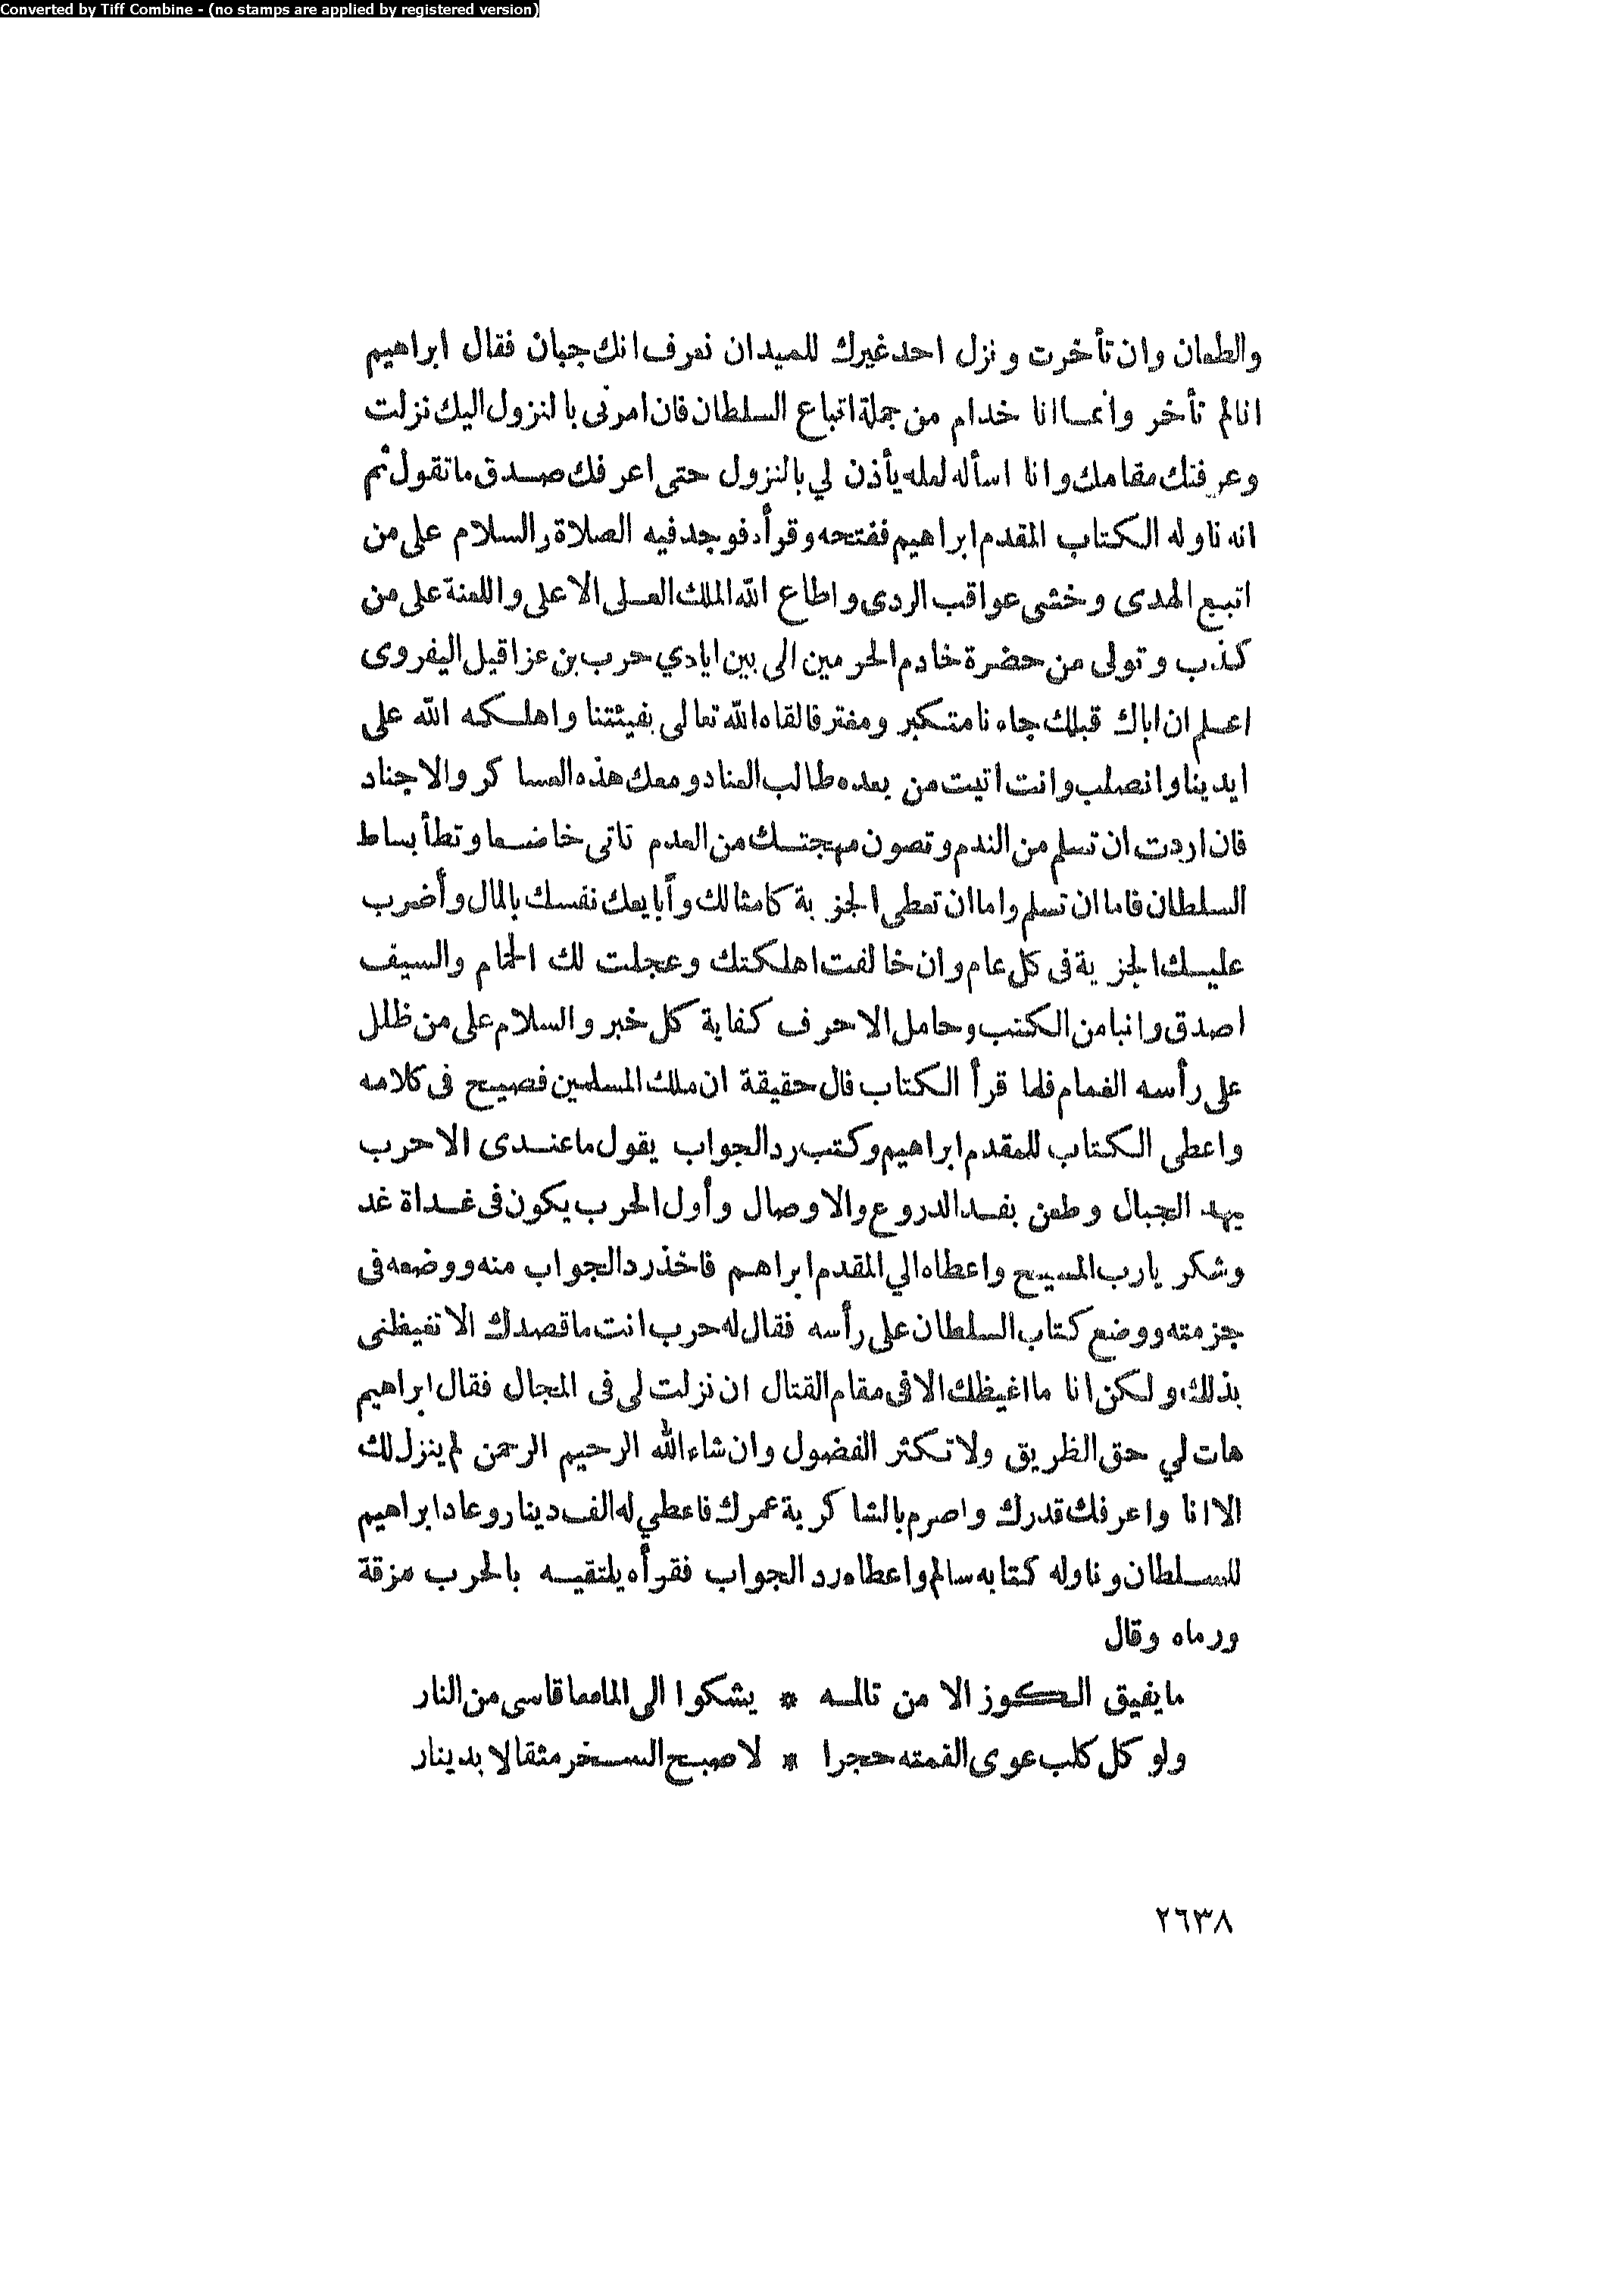 Converted by Tiff Combine - (no stamps are applied by registered version)
والطعان وان تأخرت ونزل احد غيرك للميدان نعرف انك جبان فقال ابراهيم
انا لم تأخر وانما انا خدام من جملة اتباع السلطان فان امرنى بالنزول اليك نزلت
وعرفتك مقامك وانا اسأله لعله يأذن لي بالنزول حتى اعرفك صدق ما تقول ثم
انه ناوله الكتاب المقدم ابراهيم ففتحه وقرأه فوجد فيه الصلاة والسلام على من
اتبع الهدى وخشى عواقب الردى واطاع الله الملك العلى الاعلى واللعنة على من
كذب وتولى من حضرة خادم الحرمين الى بين ايادي حرب بن عزاقيل اليفروى
اعلم ان اباك قبلك جاءنا متكبر ومفتر فالقاه الله تعالى بفيئتنا واهلكه الله على
ايدينا وانصلب وانت اتيت من بعده طالب العناد ومعك هذه العساكر والاجناد
فان اردت ان تسلم من الندم وتصون مهجتك من العدم تاتى خاضعا وتطأ بساط
السلطان فاما ان تسلم واما ان تعطى الجزية كامثالك وأبايعك نفسك بالمال وأضرب
عليك الجزية فى كل عام وان خالفت اهلكتك وعجلت لك الحمام والسيف
اصدق وانبا من الكتب وحامل الاحرف كفاية كل خبر والسلام على من ظلل
على رأسه الغمام فلما قرأ الكتاب قال حقيقة ان ملك المسلمين فصيح فى كلامه
واعطى الكتاب للمقدم ابراهيم وكتب رد الجواب يقول ما عندى الا حرب
يهد الجبال وطعن يقد الدروع والاوصال وأول الحرب يكون فى غداة غد
وشكر يارب المسيح واعطاه الي المقدم ابراهم فاخذ رد الجواب منه ووضعه فى
جزمته ووضع كتاب السلطان على رأسه فقال له حرب انت ما قصدك الا تغيظنى
بذلك ولكن انا ما اغيظك الا فى مقام القتال ان نزلت لى فى المجال فقال ابراهيم
هات لي حق الظريق ولا تكثر الفضول وان شاء الله الرحيم الرحمن لم ينزل لك
الا انا واعرفك قدرك واصرم بالشاكرية عمرك فاعطي له الف دينار وعاد ابراهيم
للسلطان وناوله كتابه سالم واعطاه رد الجواب فقرأه يلتقيه بالحرب مزقة
ورماه وقال
ما يفيق الكوز الا من تالمه * يشكوا الى الما مما قاسى من النار
ولو كل كلب عوى القمته حجرا * لاصبح السخر مثقالا بدينار
٢٦٣٨